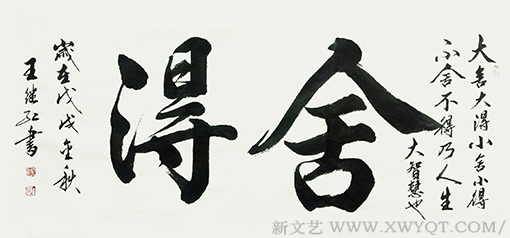 大舍大得小舍小得
不舍不得乃人生
大智慧也
舍得
歲在戊戌金秋
王继红書
新文艺 WWW.XWYQT.COM